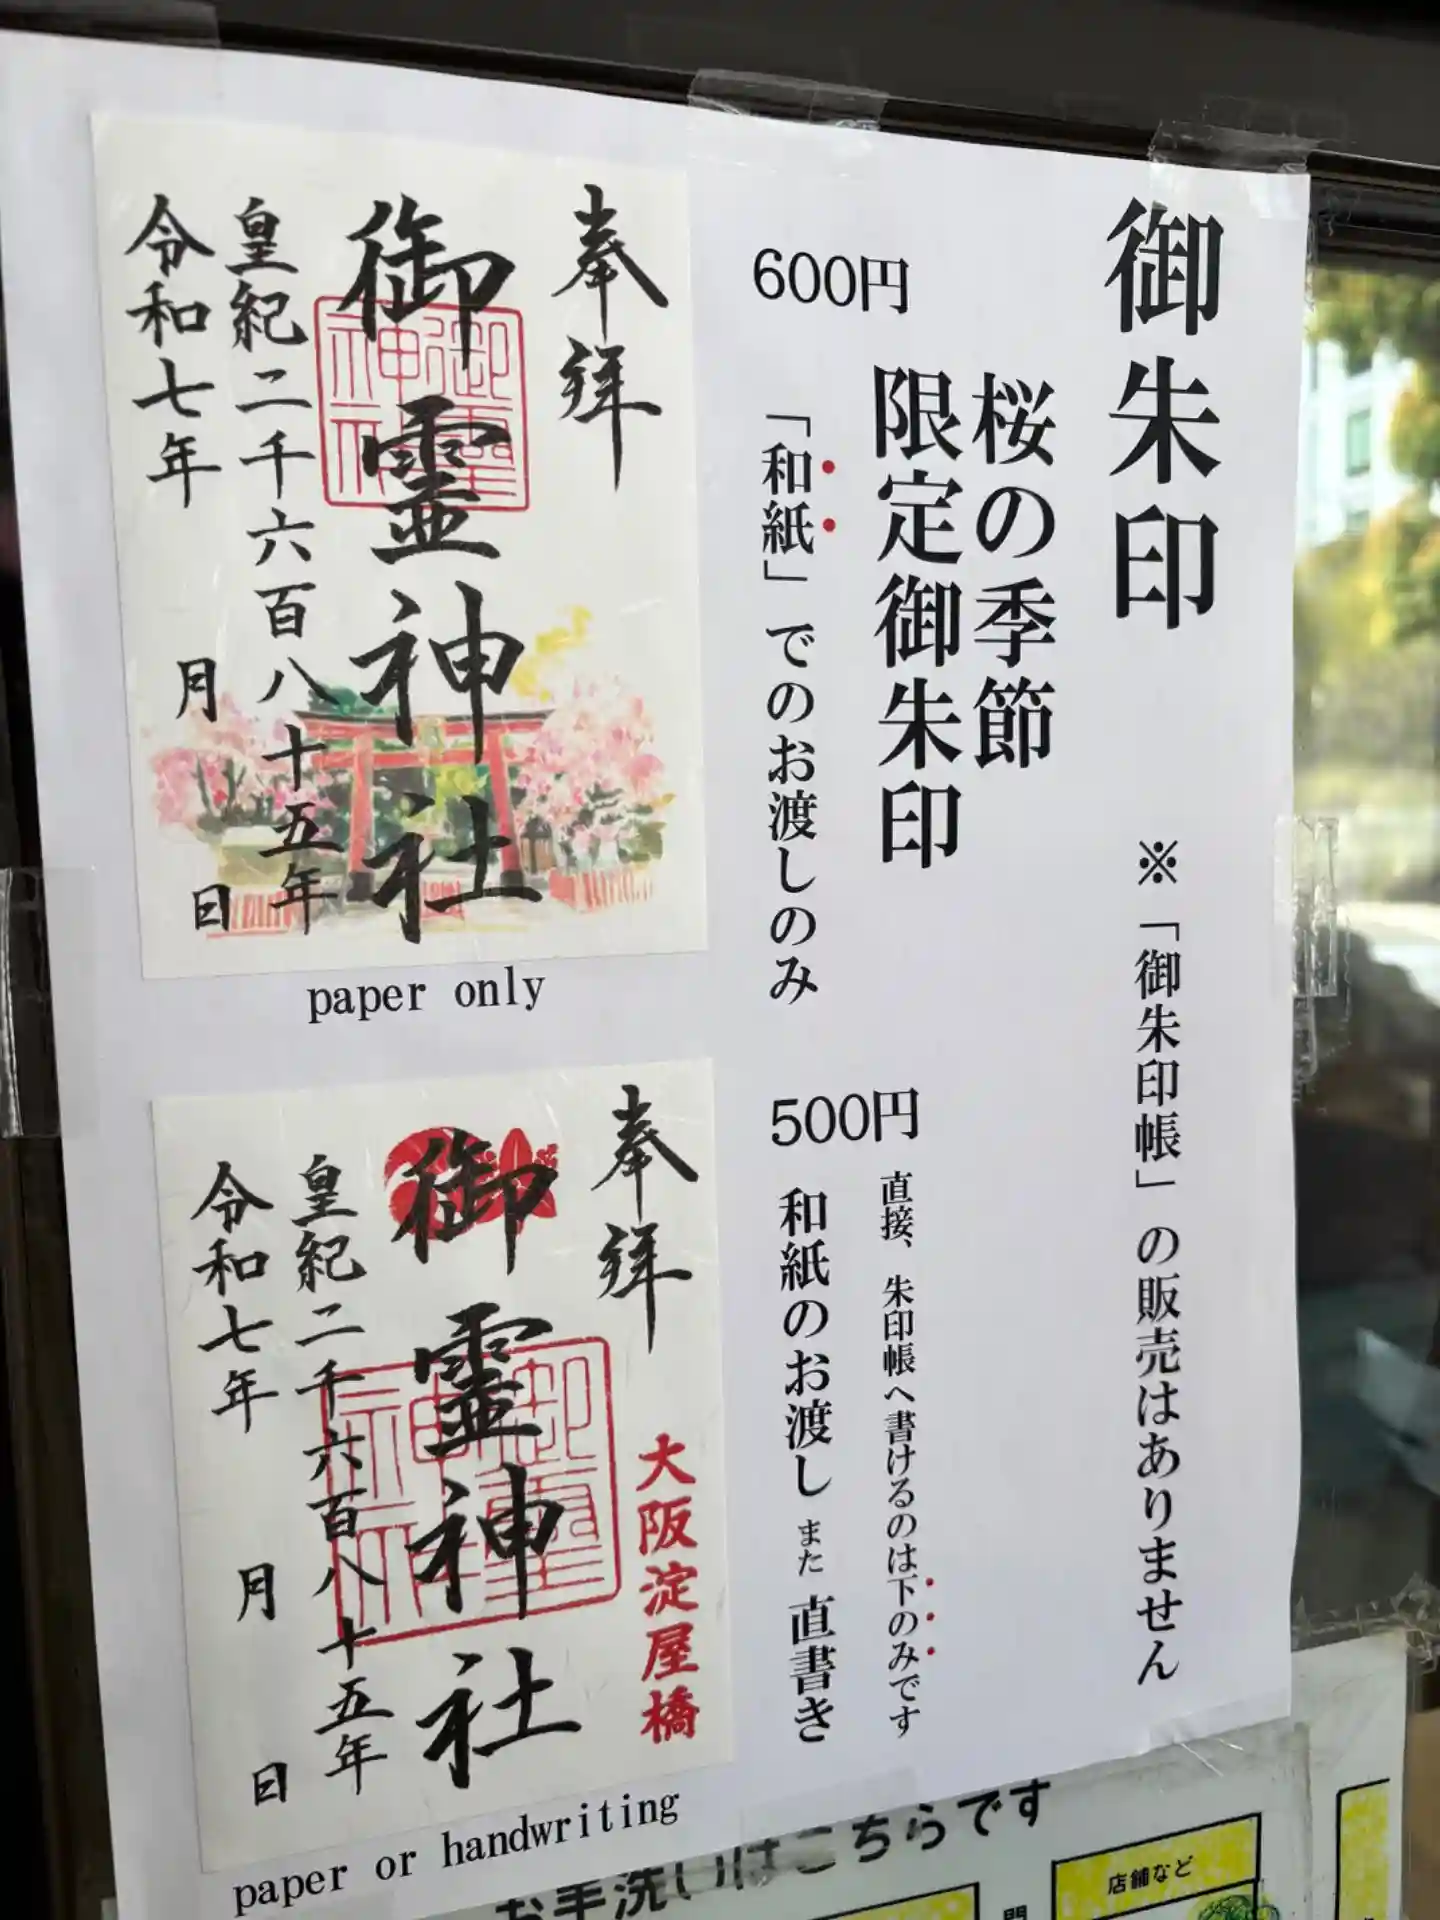 御朱印
※「御朱印帳」の販売はありません
桜の季節
限定御朱印
600円
「和紙」でのお渡しのみ
奉拝
御霊神社
御霊神社
皇紀二千六百八十五年
令和七年 月 日
paper only
500円
直接、朱印帳へ書けるのは下のみです
和紙のお渡し また 直書き
奉拝
大阪淀屋橋
御霊神社
御霊神社
皇紀二千六百八十五年
令和七年 月 日
paper or handwriting
お手洗いはこちらです
店舗など